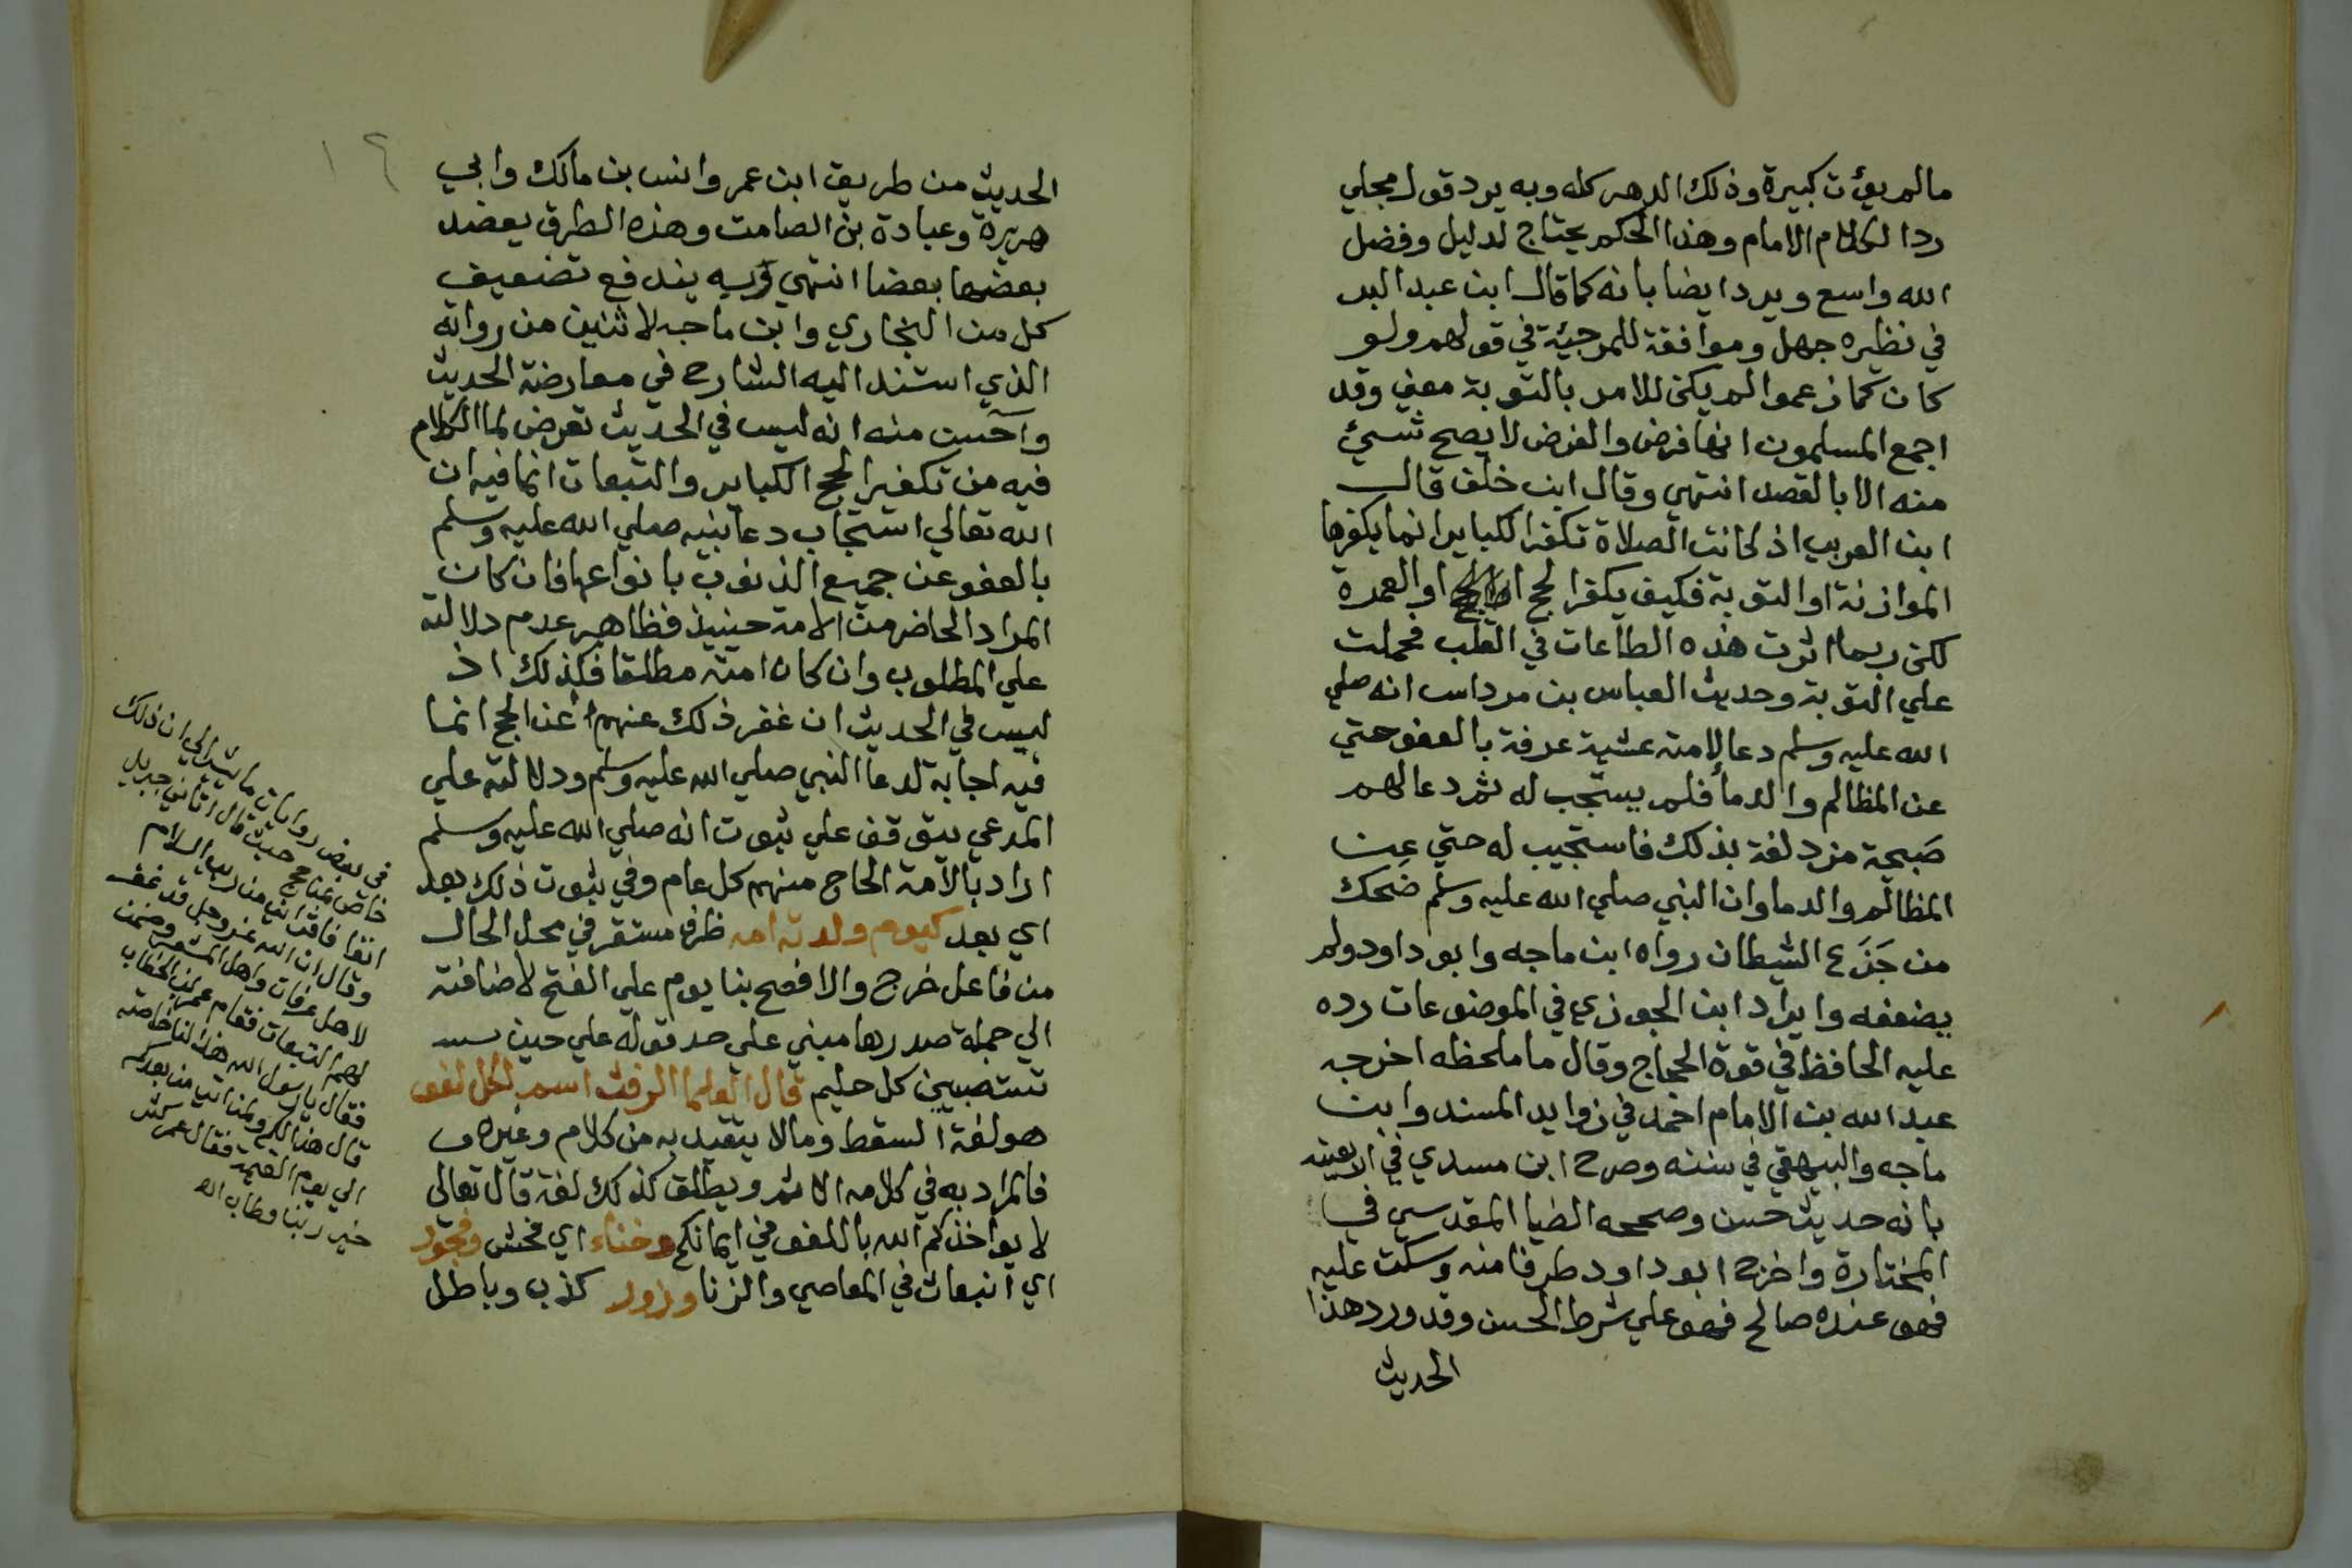 مالم يؤت كبيرة وذلك الدهر كله وبه يرد قول مجلي
ردا لكلام الامام وهذا الحكم يحتاج لدليل وفضل
الله واسع ويرد ايضا بانه كما قال ابن عبد البر
في نظيره جهل وموافقة للمرجئة في قولهم ولو
كان كما زعموا لم يكن للامر بالتوبة معني وقد
اجمع المسلمون انها فرض والفرض لا يصح شيئ
منه الا بالقصد انتهي وقال ابن خلف قال
ابن العربي اذ كانت الصلاة تكفر الكباير انما يكفرها
الموازنة او التوبة فكيف يكفر الحج او العمرة
لكن ربما اثرت هذه الطاعات في القلب فحملت
علي التوبة وحديث العباس بن مرداس انه صلي
الله عليه وسلم دعا لامته عشية عرفة بالعفو حتي
عن المظالم والدما فلم يستجب له ثم دعا لهم
صبيحة مزدلفة بذلك فاستجيب له حتي عن
المظالم والدما وان النبي صلي الله عليه وسلم ضحك
من جَزَع الشيطان رواه ابن ماجه وابو داود ولم
يضعفه وايراد ابن الجوزي في الموضوعات رده
عليه الحافظ في قوة الحجاج وقال ما ملحظه اخرجه
عبد الله بن الامام احمد في زوايد المسند وابن
ماجه والبيهقي في سننه وصرح ابن مسدي في
بانه حديث حسن وصححه الضيا المقدسي في
المختارة واخرج ابو داود طرفا منه وسكت عليه
فهو عنده صالح فهو علي شرط الحسن وقد ورد هذا
الحديث
١٢
الحديث من طريق ابن عمر وانس بن مالك وابي
هريرة وعبادة بن الصامت وهذه الطرق يعضد
بعضها بعضا انتهي وبه يندفع تضعيف
كل من البخاري وابن ماجه لاثنين من رواته
الذي استند اليه الشارح في معارضة الحديث
واحسن منه انه ليس في الحديث تعرض لما الكلام
فيه من تكفير الحج الكباير والتبعات انما فيه ان
الله تعالي استجاب دعا نبيه صلي الله عليه وسلم
بالعفو عن جميع الذنوب بانواعها فان كان
المراد الحاضر من الامة حينيذ فظاهر عدم دلالته
علي المطلوب وان كان امته مطلقا فكذلك اذ
ليس في الحديث ان غفر ذلك عنهم عند الحج انما
فيه اجابة لدعا النبي صلي الله عليه وسلم ودلالته علي
المدعي يتوقف علي ثبوت انه صلي الله عليه وسلم
اراد بالامة الحاج منهم كل عام وفي ثبوت ذلك بعد
اي بعد كيوم ولدته امه ظرف مستقر في محل الحال
من فاعل خرج والافصح بنا يوم علي الفتح لاضافته
الي جملة صدرها مبني علي حد قوله علي حين
تستصبين كل حليم قال العلما الرفث اسم لكل لغو
هو لغة السقط ومالا يتقيد به من كلام وغيره
فالمراد به في كلامه الاثم ويطلق كذلك لغة قال تعالي
لا يواخذكم الله باللغو في ايمانكم وخناء اي فحش وفجور
اي انبعاث في المعاصي والزنا وزور كذب وباطل
في بعض روايات ما يشير الي ان ذلك
خاص بمن حج حيث قال اتاني جبريل
انفا فاقراني من ربي السلام
وقال ان الله عز وجل قد غفر
لاهل عرفات واهل المشعر وضمن
لهم التبعات فقام عمر بن الخطاب
فقال يارسول الله هذا لنا خاصة
قال هذا لكم ولمن اتي من بعدكم
الي يوم القيمة فقال عمر كثر
خير ربنا وطاب